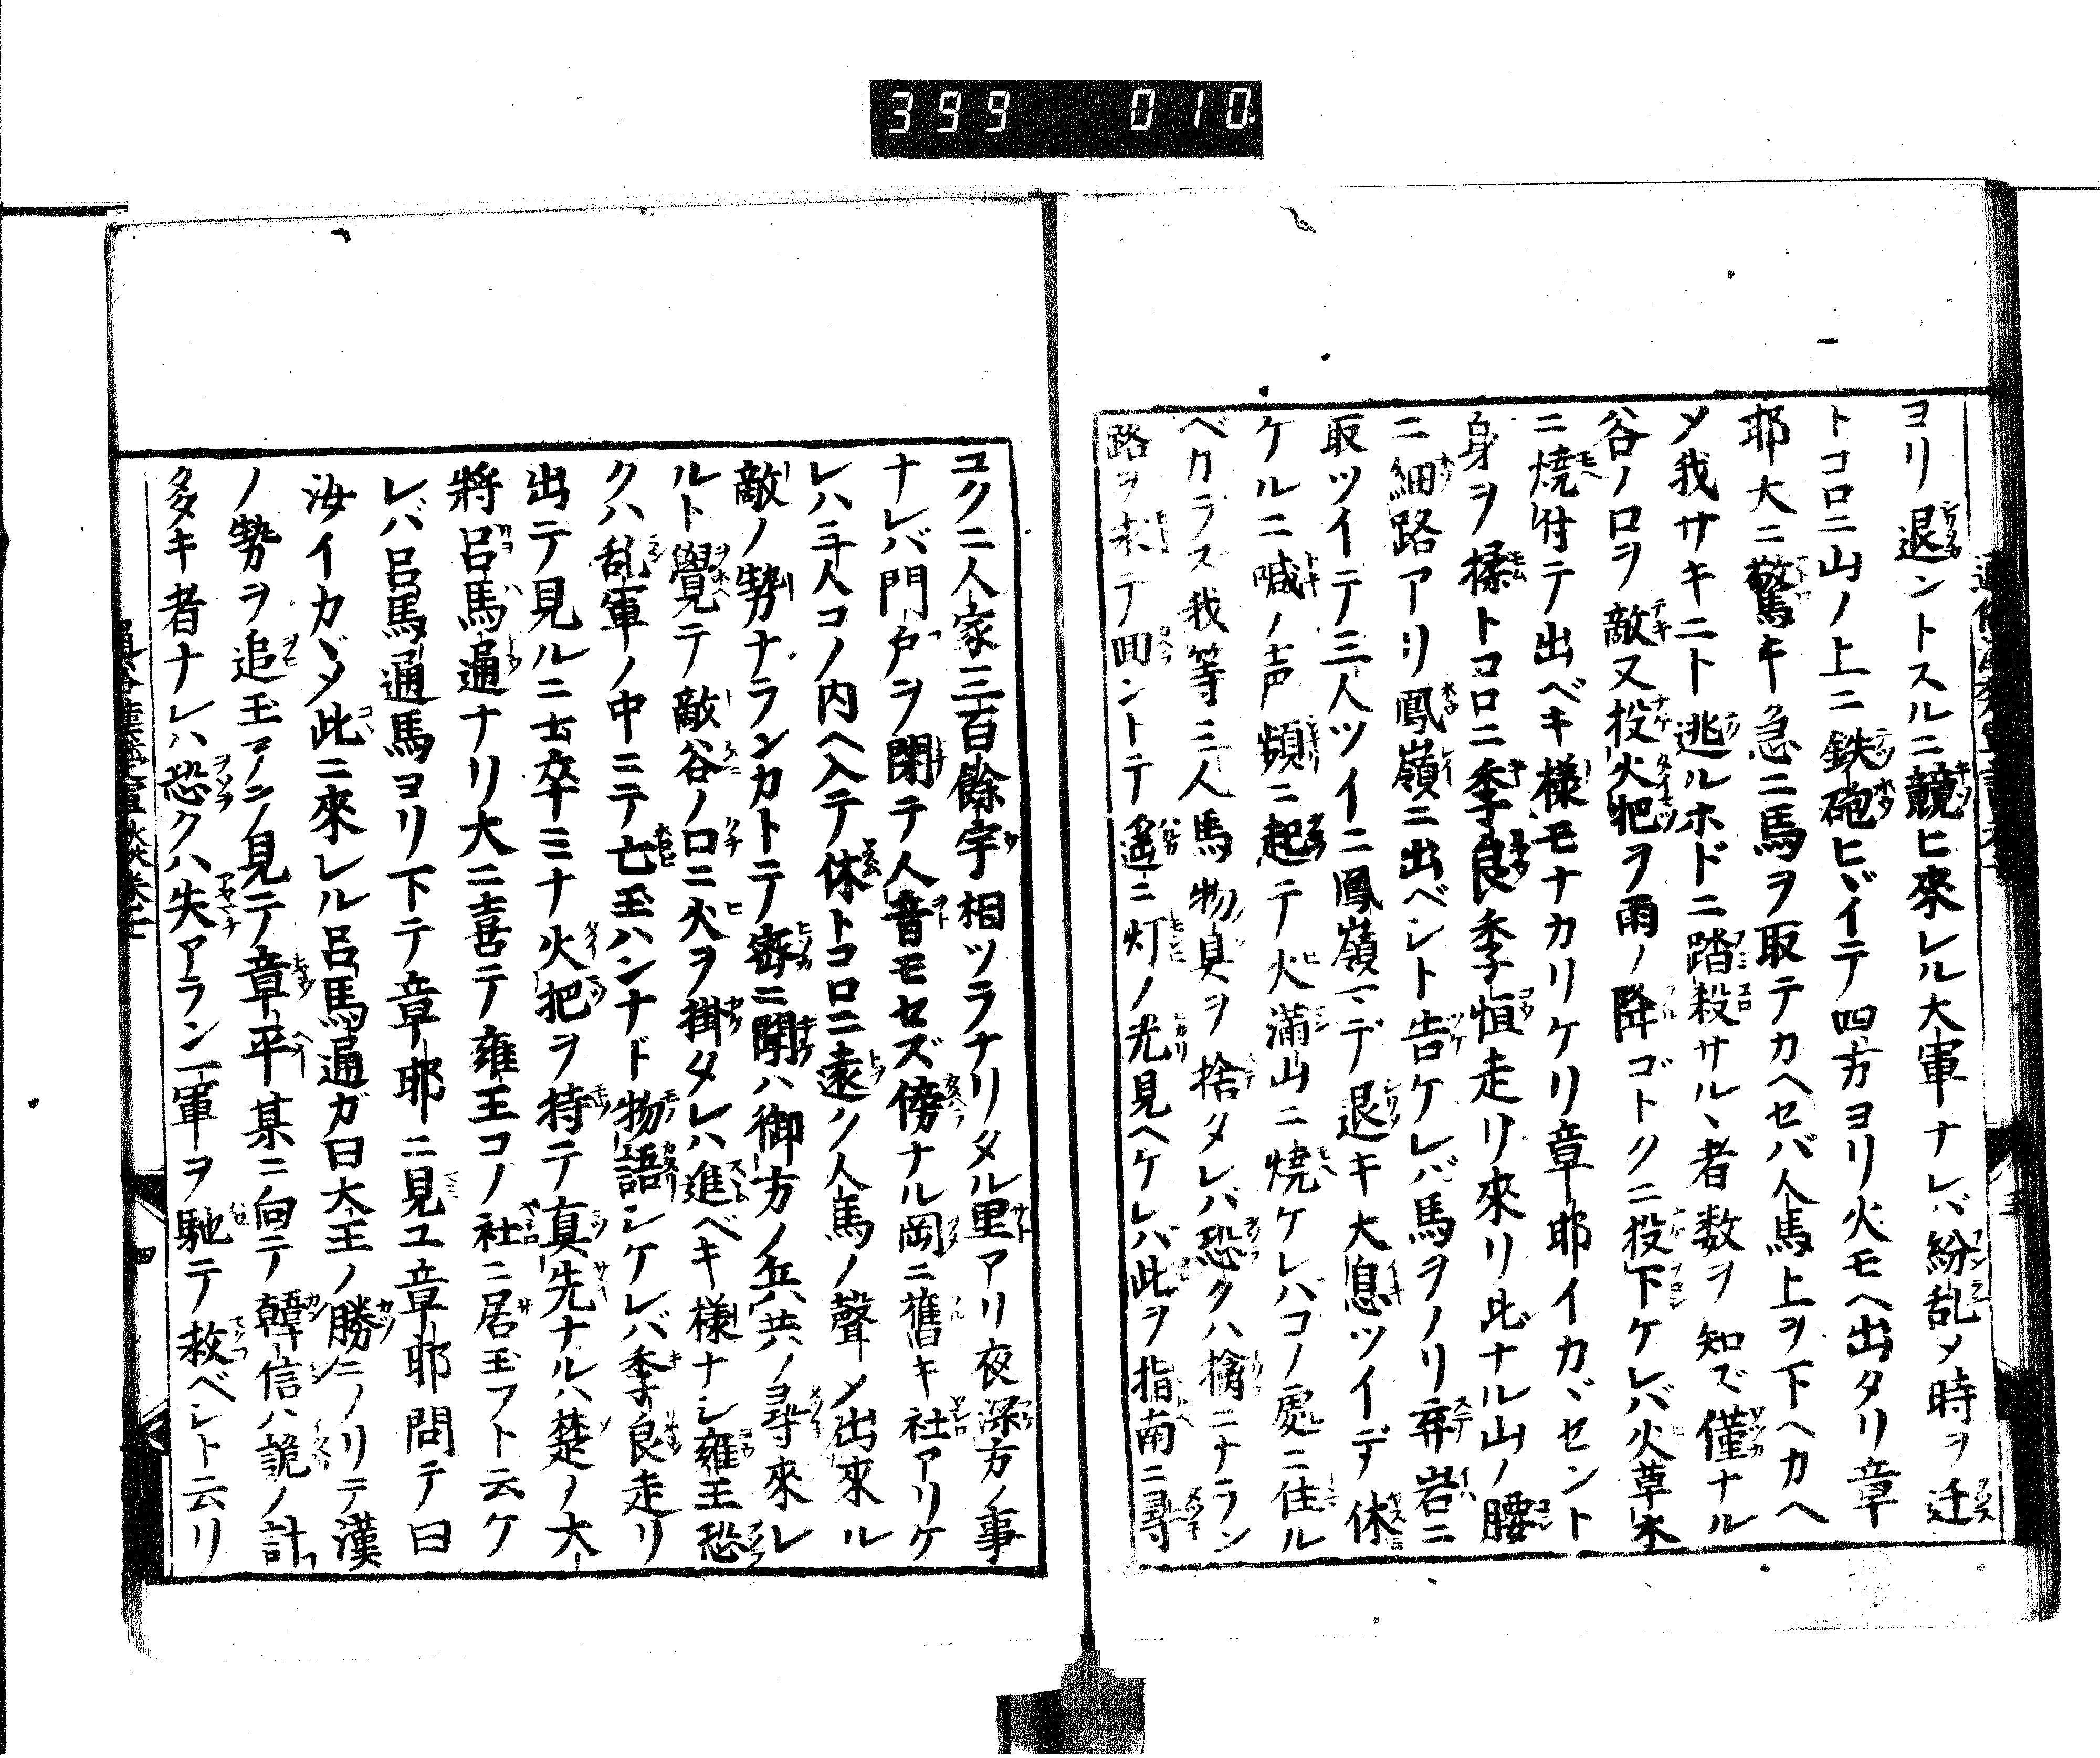 399 010
ヨリ退ントスルニ競ヒ來レル大軍ナレバ紛乱メ時ヲ迁
トコロニ山ノ上ニ鉄砲ヒヾイテ四方ヨリ火モヘ出タリ章
耶大ニ驚キ急ニ馬ヲ取テカヘセバ人馬上ヲ下ヘカヘ
メ我サキニト逃ルホドニ踏殺サルヽ者数ヲ知ズ僅ナル
谷ノ口ヲ敵又投火把ヲ雨ノ降ゴトクニ投下ケレバ火草木
ニ焼付テ出ベキ様モナカリケリ章耶イカヾセント
身ヲ揉トコロニ季良季恒走リ來リ此ナル山ノ腰
ニ細路アリ鳳嶺ニ出ベシト告ケレバ馬ヲノリ弃岩ニ
取ツイテ三人ツイニ鳳嶺マデ退キ大息ツイデ休
ケルニ喊ノ声頻ニ起テ火満山ニ焼ケレバコノ處ニ住ル
ベカラス我等三人馬物具ヲ捨タレバ恐クハ擒ニナラン
路ヲ求テ回ントテ遥ニ灯ノ光見ヘケレバ此ヲ指南ニ尋
ユクニ人家三百餘宇相ツラナリタル里アリ夜深方ノ事
ナレバ門戸ヲ閉テ人音モセズ傍ナル岡ニ舊キ社アリケ
レハ三人コノ内ヘ入テ休トコロニ遠ク人馬ノ聲メ出來ル
敵ノ勢ナランカトテ密ニ聞ハ御方ノ兵共ノ尋來レ
ルト覺テ敵谷ノ口ニ火ヲ掛タレハ進ベキ様ナシ雍王恐
クハ乱軍ノ中ニテ亡玉ハンナド物語シケレバ季良走リ
出テ見ルニ士卒ミナ火把ヲ持テ真先ナルハ楚ノ大
將呂馬通ナリ大ニ喜テ雍王コノ社ニ居玉フト云ケ
レバ呂馬通馬ヨリ下テ章耶ニ見ユ章耶問テ曰
汝イカヾメ此ニ來レル呂馬通ガ曰大王ノ勝ニノリテ漢
ノ勢ヲ追玉フンノ見テ章平某ニ向テ韓信ハ詭ノ計
多キ者ナレハ恐クハ失アラン一軍ヲ馳テ救ベシト云リ